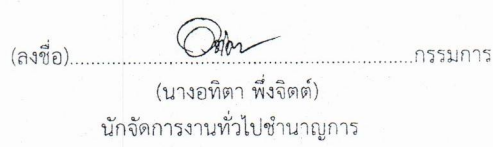 (ลงชื่อ)........................................................กรรมการ
(นางอทิตา พึ่งจิตต์)
นักจัดการงานทั่วไปชำนาญการ